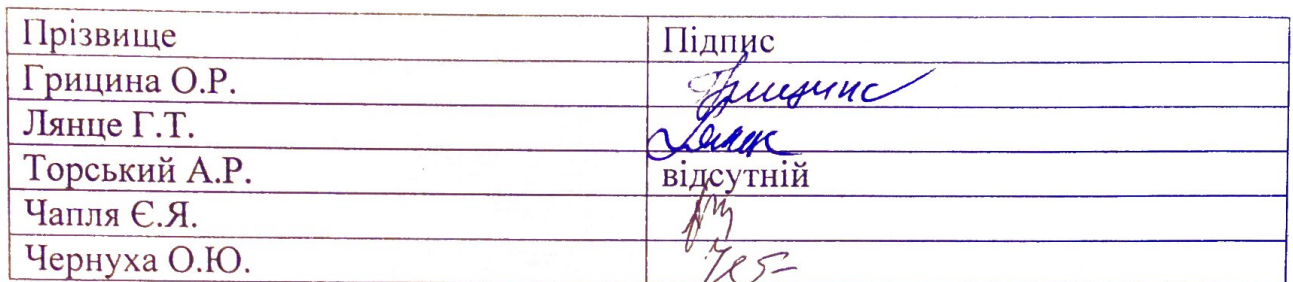 Прізвище Підпис
Грицина О.Р. Грицинс
Лянце Г.Т.
Торський А.Р. відсутній
Чапля Є.Я.
Чернуха О.Ю.